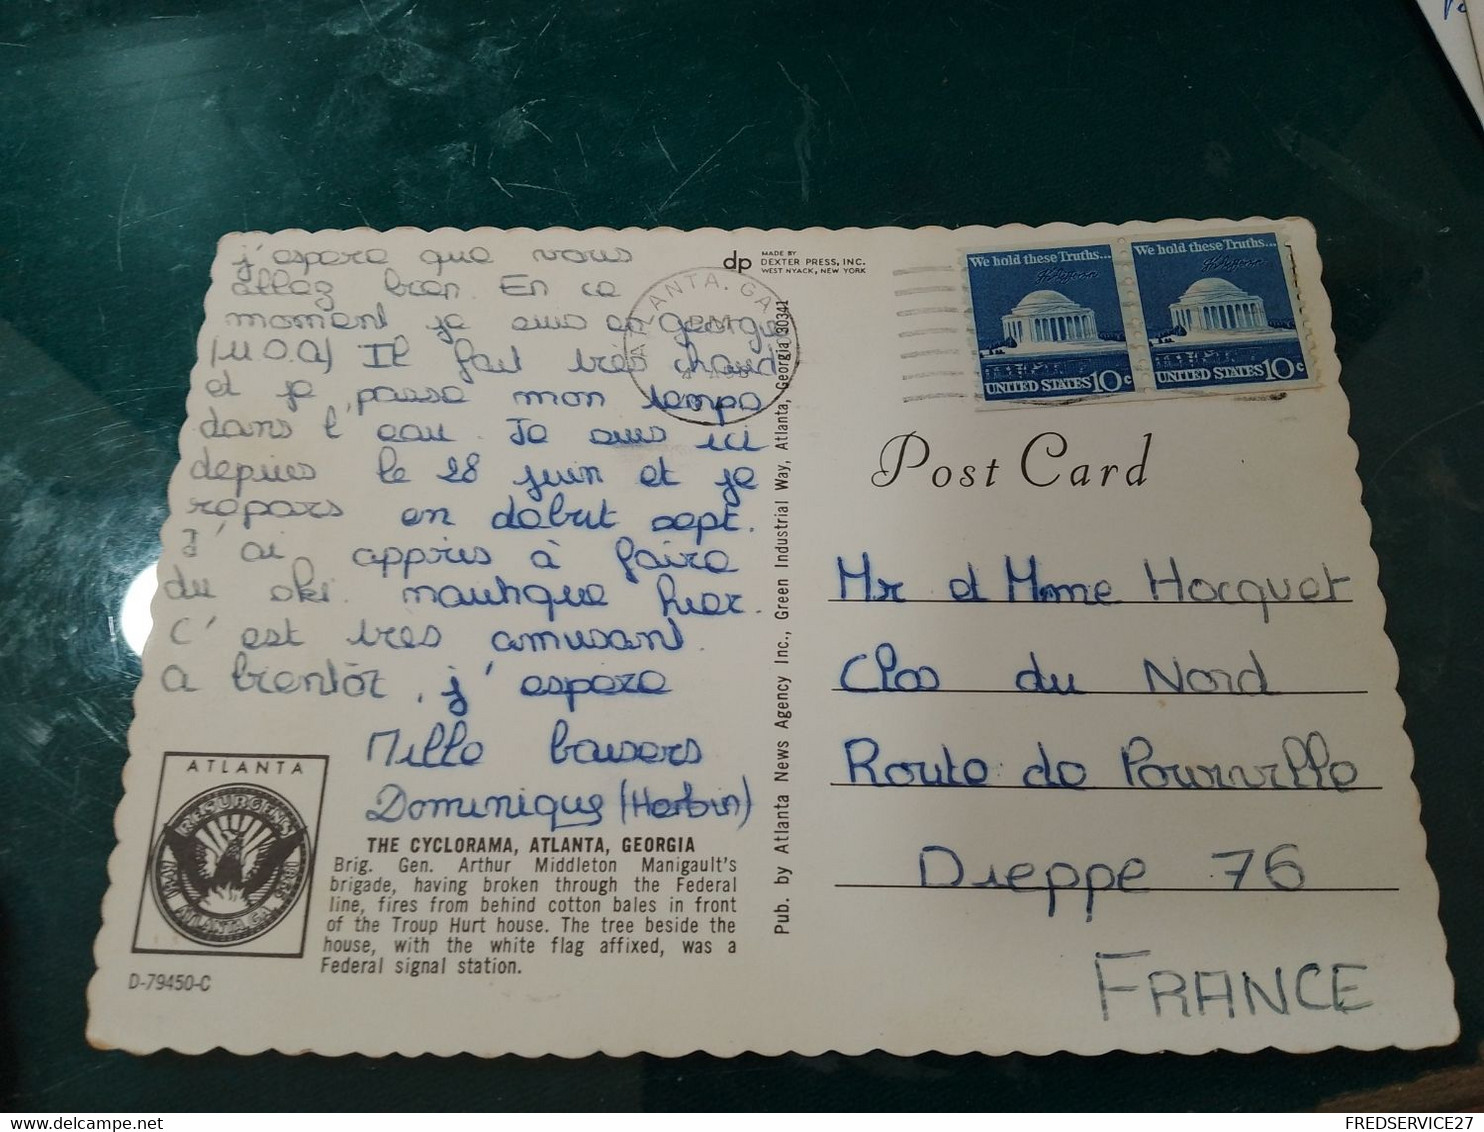 j'espère que vous
allez bien. En ce
moment je suis en Georgie
(U.S.A) Il fait très chaud
et je passe mon temps
dans l'eau. Je suis ici
depuis le 28 juin et je
repars en début sept.
J'ai appris à faire
du ski nautique hier.
C'est très amusant.
A bientôt, j'espère
Mille baisers
Dominique (Herbin)
ATLANTA
RESURGENS
ATLANTA, GA.
THE CYCLORAMA, ATLANTA, GEORGIA
Brig. Gen. Arthur Middleton Manigault's
brigade, having broken through the Federal
line, fires from behind cotton bales in front
of the Troup Hurt house. The tree beside the
house, with the white flag affixed, was a
Federal signal station.
D-79450-C
dp
MADE BY
DEXTER PRESS, INC.
WEST NYACK, NEW YORK
ATLANTA, GA
Pub. by Atlanta News Agency Inc., Green Industrial Way, Atlanta, Georgia 30341
We hold these Truths...
UNITED STATES 10c
We hold these Truths...
UNITED STATES 10c
Post Card
Mr et Mme Hocquet
Clos du Nord
Route de Pourville
Dieppe 76
FRANCE
FREDSERVICE27